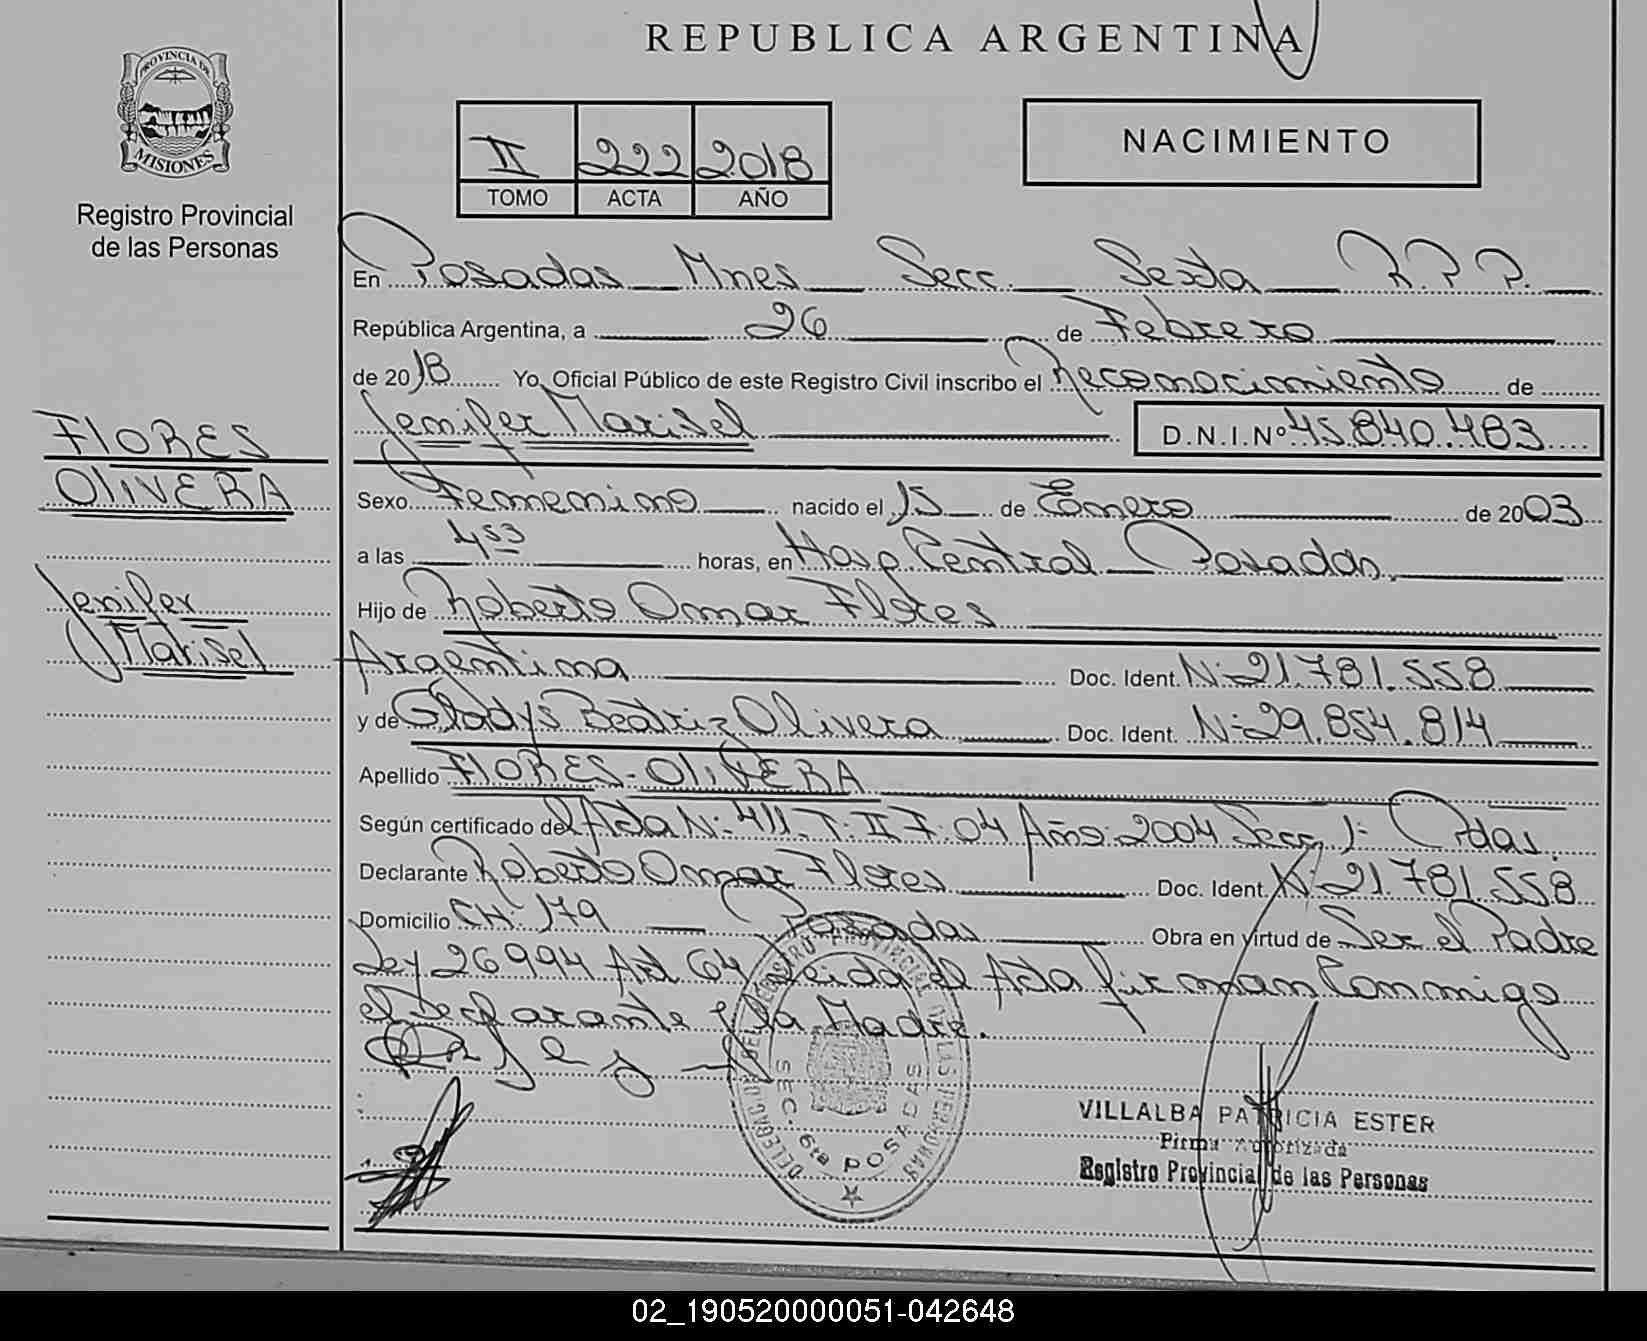 REPUBLICA ARGENTINA
PROVINCIA DE
MISIONES
Registro Provincial
de las Personas
II 222 2018
TOMO ACTA AÑO
NACIMIENTO
En Posadas Mnes Secc. Sexta R.P.P.
República Argentina, a 26 de Febrero
de 2018 Yo, Oficial Público de este Registro Civil inscribo el Reconocimiento de
Jenifer Marisel D.N.I.Nº 45.840.483
FLORES
OLIVERA
Jenifer
Marisel
Sexo Femenino nacido el 15 de Enero de 2003
a las 4 53 horas, en Hosp Central Posadas.
Hijo de Roberto Omar Flores
Argentina Doc. Ident. N: 21.781.558
y de Gladys Beatriz Olivera Doc. Ident. N: 29.854.814
Apellido FLORES - OLIVERA
Según certificado del Acta N: 411. T: II F: 04 Año: 2004 Secc 1: Pdas.
Declarante Roberto Omar Flores Doc. Ident. N: 21.781.558
Domicilio CH: 179 Posadas Obra en virtud de Ser el Padre
Ley 26994 Art 64 Leida el Acta firman Conmigo
el Declarante y la Madre.
DELEGACION DEL REGISTRO PROVINCIAL DE LAS PERSONAS
SEC. 6ta POSADAS
VILLALBA PATRICIA ESTER
Firma Autorizada
Registro Provincial de las Personas
02_190520000051-042648